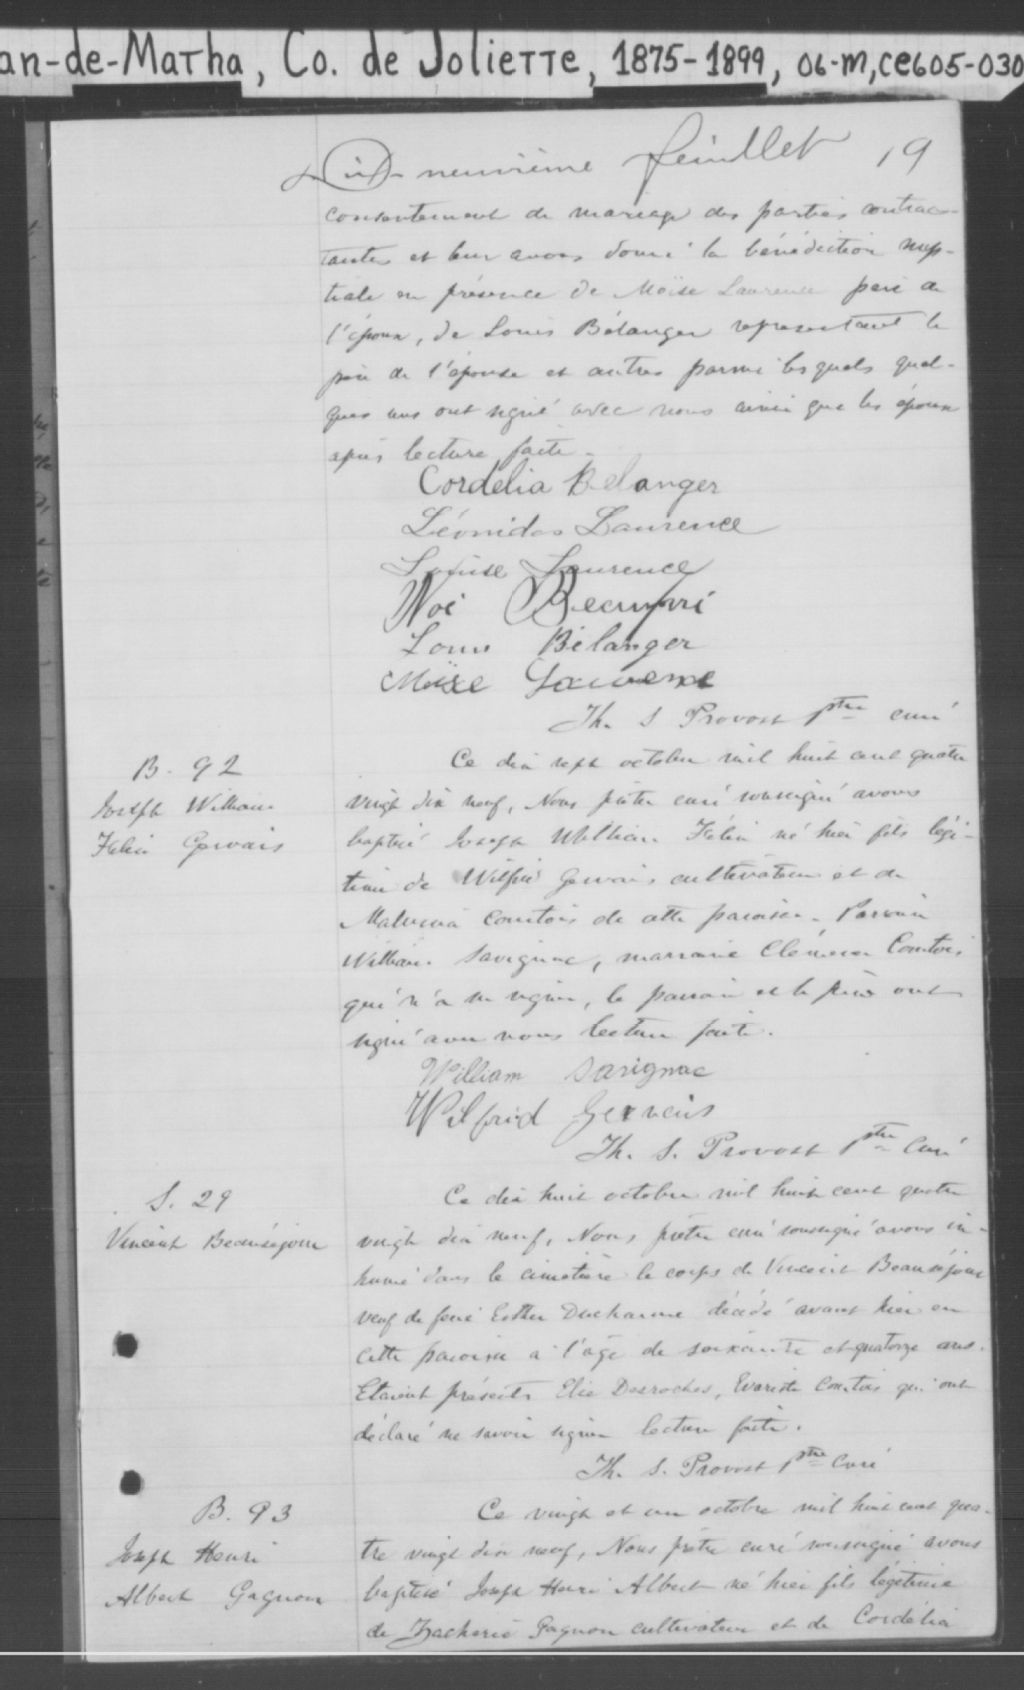 an-de-Matha, Co. de Joliette, 1875-1899, 06-M, CE605-030
Dix neuvième feuillet 19
consentement de mariage des parties contrac-
tantes et leur avons donné la bénédiction nup-
tiale en présence de Moïse Laurence père de
l'époux, de Louis Bélanger représentant le
père de l'épouse et autres parmi lesquels quel-
ques uns ont signé avec nous ainsi que les époux
après lecture faite.
Cordelia Belanger
Léonidas Laurence
Louise Laurence
Noé
Louis Bélanger
Moïse Laurence
Th. S. Provost Ptre curé
B. 92
Joseph William
Félix Gervais
Ce dix sept octobre mil huit cent quatre
vingt dix neuf, Nous prêtre curé soussigné avons
baptisé Joseph William Félix né hier fils légi-
time de Wilfrid Gervais cultivateur et de
Malvina Courtois de cette paroisse. Parrain
William Savignac, marraine Clémence Courtois
qui n'a su signer, le parrain et le père ont
signé avec nous lecture faite.
William Savignac
Wilfrid Gervais
Th. S. Provost Ptre Curé
S. 29
Vincent Beauséjour
Ce dix huit octobre mil huit cent quatre
vingt dix neuf, Nous prêtre curé soussigné avons in-
humé dans le cimetière le corps de Vincent Beauséjour
veuf de feue Esther Ducharme décédé avant hier en
cette paroisse à l'âge de soixante et quatorze ans.
Etaient présents Elie Desroches, Evariste Courtois qui ont
déclaré ne savoir signer lecture faite.
Th. S. Provost Ptre Curé
B. 93
Joseph Henri
Albert Gagnon
Ce vingt et un octobre mil huit cent qua-
tre vingt dix neuf, Nous prêtre curé soussigné avons
baptisé Joseph Henri Albert né hier fils légitime
de Zacharie Gagnon cultivateur et de Cordélia